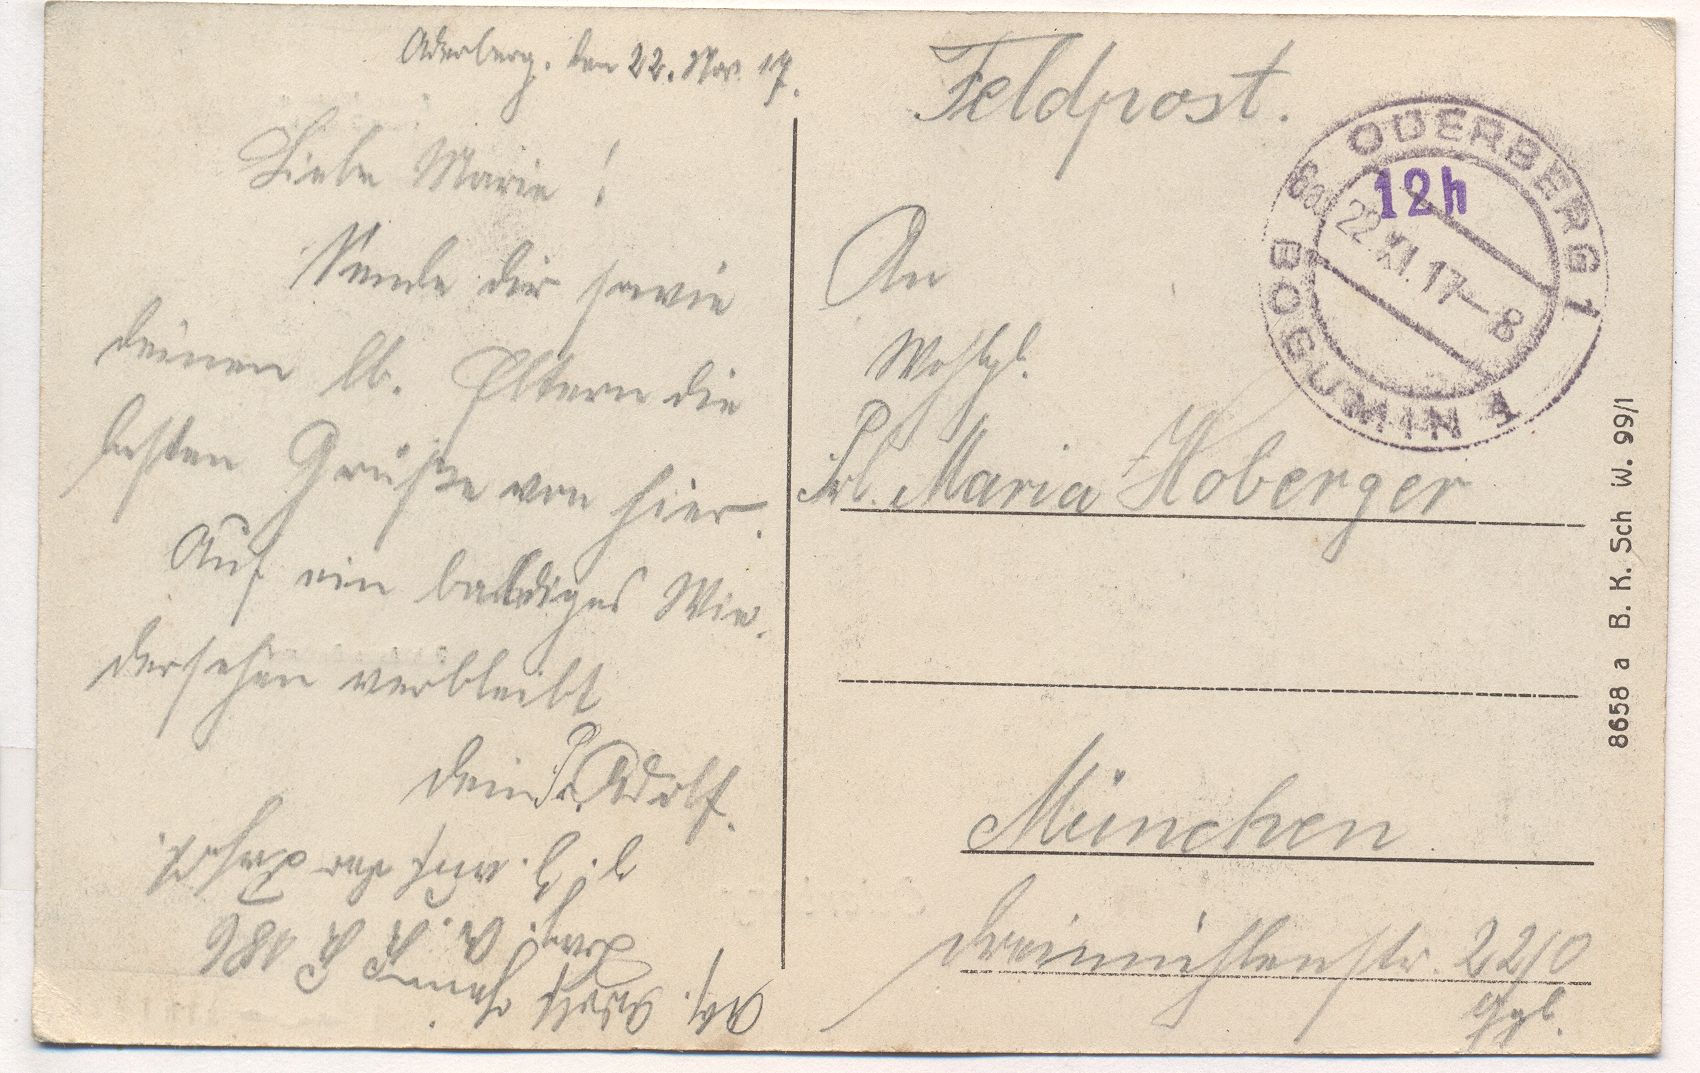 Oderberg, den 22. Nov. 17.
Liebe Marie!
Sende dir sowie
deinen lb. Eltern die
besten Grüße von hier.
Auf ein baldiges Wie-
dersehen verbleibt
dein Adolf.
z. Z. auf der
Adolf
186
Feldpost.
An
Wohlgb.
Frl. Maria Hoberger
München
Dreimühlenstr. 22/0
ODERBERG 1
12h
22.XI.17–8
BOGUMIN 1
8658 a B. K. Sch W. 99/1